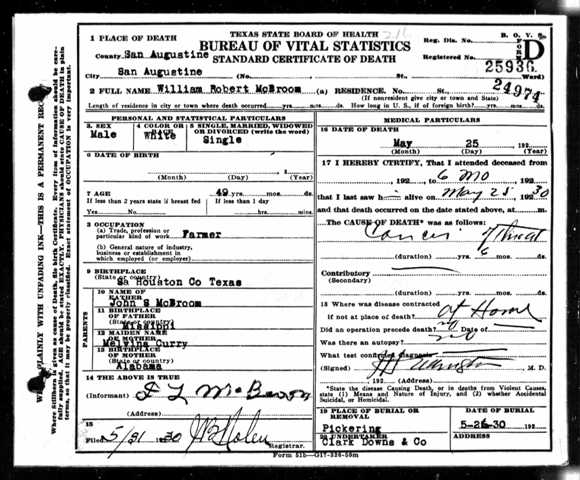 TEXAS STATE BOARD OF HEALTH
BUREAU OF VITAL STATISTICS
STANDARD CERTIFICATE OF DEATH
Reg. Dis. No.
B. O. V. S.
FORM D
Registered No. 25936
24974
1 PLACE OF DEATH
County San Augustine
City San Augustine (No. St. Ward)
2 FULL NAME William Robert McBroom (a) RESIDENCE. No. St.
(If nonresident give city or town and State)
Length of residence in city or town where death occurred yrs. mos. ds. How long in U. S., if of foreign birth? yrs. mos. ds.
PERSONAL AND STATISTICAL PARTICULARS
3. SEX
Male
4 COLOR OR RACE
White
5 SINGLE, MARRIED, WIDOWED
OR DIVORCED (write the word)
Single
6 DATE OF BIRTH
(Month) (Day) (Year)
7 AGE 49 yrs. mos. ds.
If less than 2 years state if breast fed If less than 1 day
Yes No hrs. min.
8 OCCUPATION
(a) Trade, profession or
particular kind of work Farmer
(b) General nature of industry,
business or establishment in
which employed (or employer)
9 BIRTHPLACE
(State or country)
Sa Houston Co Texas
PARENTS
10 NAME OF
FATHER
John S McBroom
11 BIRTHPLACE
OF FATHER
(State or country)
Missippi
12 MAIDEN NAME
OF MOTHER
Melvina Curry
13 BIRTHPLACE
OF MOTHER
(State or country)
Alabama
14 THE ABOVE IS TRUE
(Informant) McBroom
(Address)
15
Filed 5/31 1930
Registrar.
MEDICAL PARTICULARS
16 DATE OF DEATH
May 25 192
(Month) (Day) (Year)
17 I HEREBY CERTIFY, That I attended deceased from
, 192 , to 6 mo , 192
that I last saw h alive on May 25, 1930
and that death occurred on the date stated above, at m.
The CAUSE OF DEATH* was as follows:
Cancer of throat
(duration) yrs. 6 mos. ds.
Contributory
(Secondary)
(duration) yrs. mos. ds.
18 Where was disease contracted
if not at place of death? at Home
Did an operation precede death? no Date of
Was there an autopsy? no
What test confirmed diagnosis
(Signed) , M. D.
, 192 (Address)
*State the disease Causing Death, or in deaths from Violent Causes,
state (1) Means and Nature of Injury, and (2) whether Accidental
Suicidal, or Homicidal.
19 PLACE OF BURIAL OR
REMOVAL
Pickering
DATE OF BURIAL
5-26-30 192
20 UNDERTAKER
Clark Downs & Co
ADDRESS
Form 51b—G17-326-50m
PLAINLY WITH UNFADING INK—THIS IS A PERMANENT